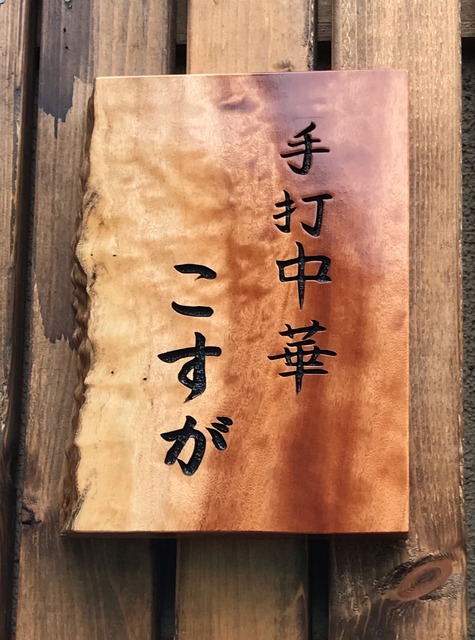 手打中華
こすが